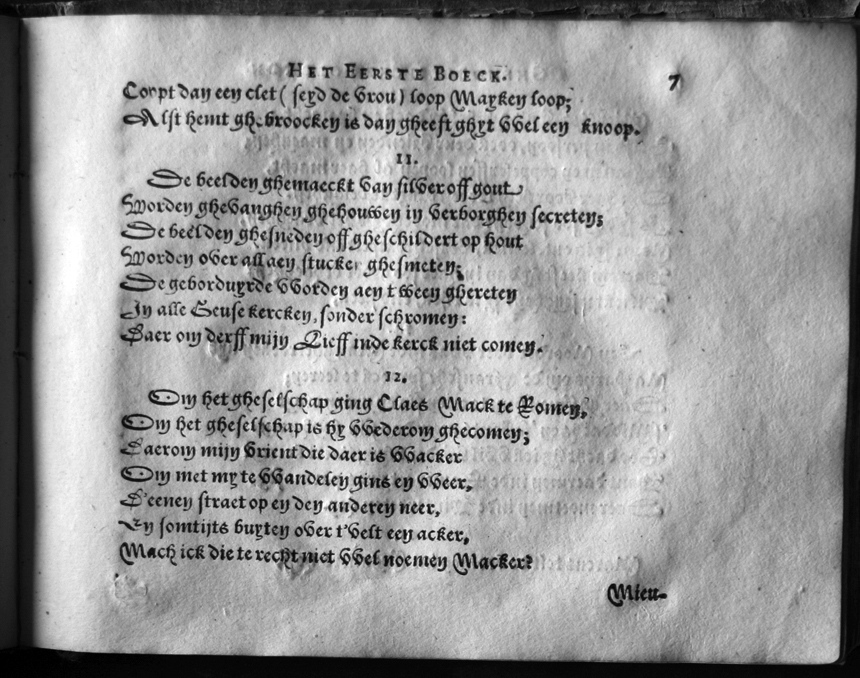 HET EERSTE BOECK. 7
Corpt dan een clet ( seyd de Vrou ) loop Mayken loop;
Alst hemt ghebroocken is dan gheeft ghyt VVel een knoop.
11.
De beelden ghemaeckt van silver off gout
Worden ghevanghen ghehouwen in verborghen secreten;
De beelden ghesneden off gheschildert op hout
Worden over all aen stucken ghesmeten;
De geborduyrde VVorden aen tween ghereten
In alle Geuse kercken, sonder schromen:
Daer om derff mijn Lieff inde kerck niet comen.
12.
Om het gheselschap ging Claes Mack te Romen,
Om het gheselschap is hy VVederom ghecomen;
Daerom mijn vrient die daer is VVacker
Om met my te VVandelen gins en VVeer,
D'eenen straet op en den anderen neer,
En somtijts buyten over t'velt een acker,
Mach ick die te recht niet VVel noemen Macker?
Mieu-